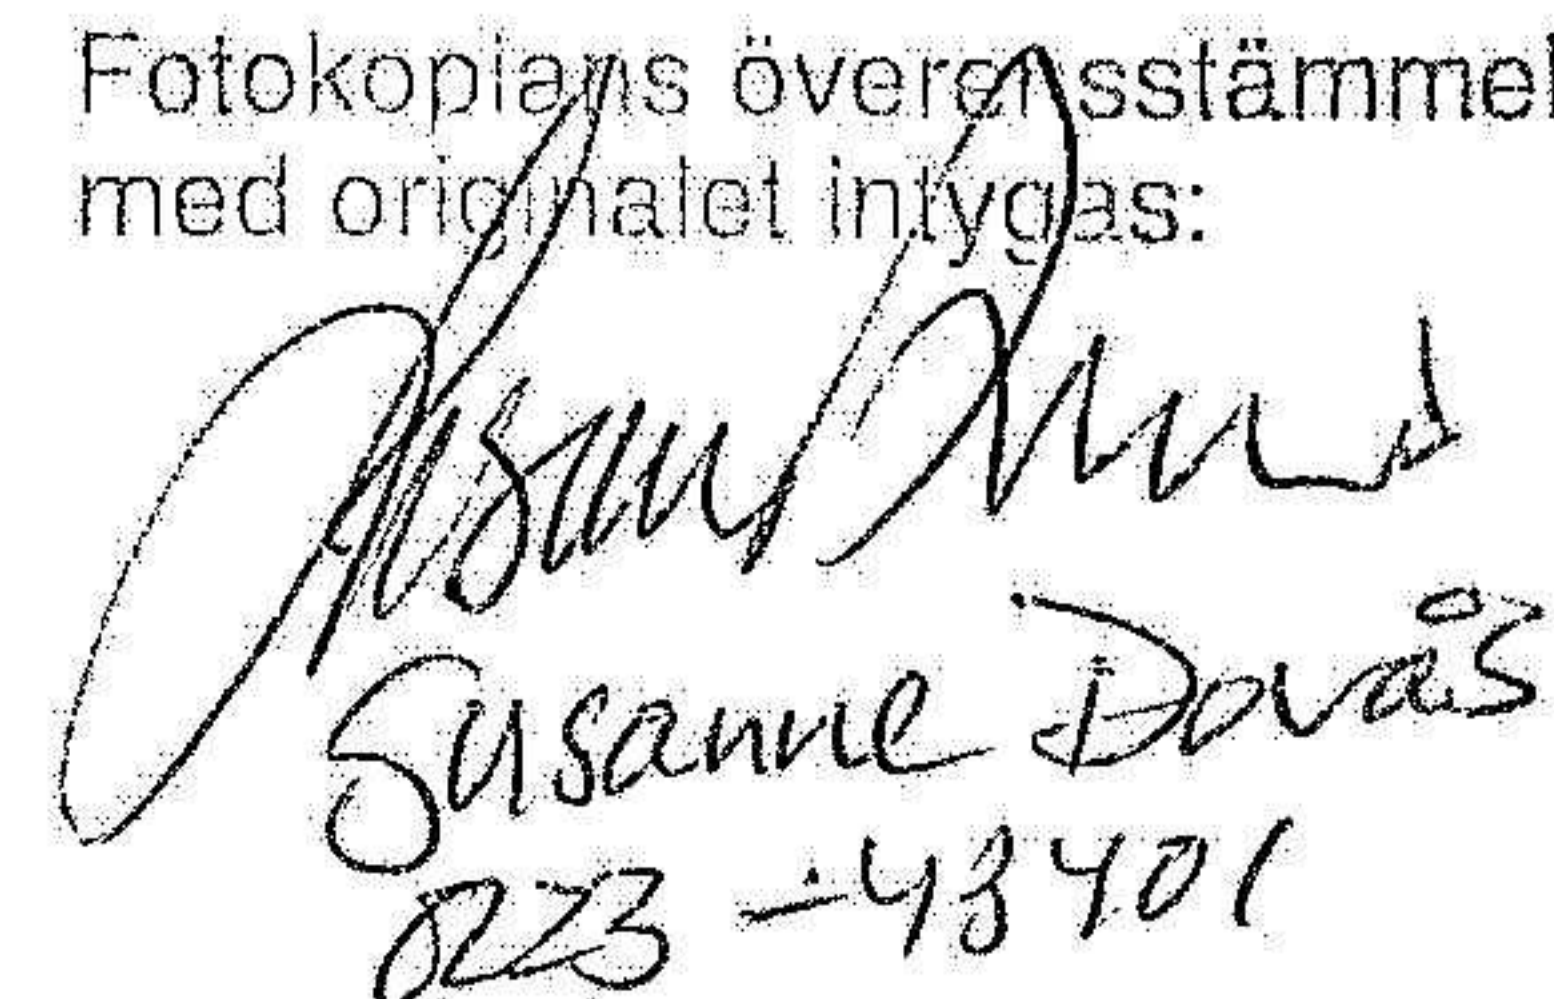 Fotokopians överensstämmel
med originalet intygas:
Susanne Dovås
0223-43401